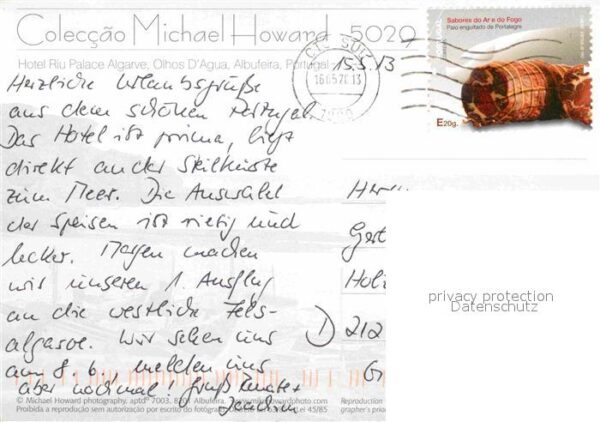 Colecção Michael Howard 5029
Hotel Riu Palace Algarve, Olhos D'Agua, Albufeira, Portugal
15.5.13
Herzliche Urlaubsgrüße
aus dem schönen Portugal.
Das Hotel ist prima, liegt
direkt an der Steilküste
zum Meer. Die Auswahl
der Speisen ist riesig und
lecker. Morgen machen
wir unseren 1. Ausflug
an die westliche Fels-
algarve. Wir sehen uns
am 8.6., melden uns
aber nochmal! Gruß Renate +
Joachim
CTC SUL
16.05.20.13
Sabores do Ar e do Fogo
Paio enguitado de Portalegre
E20g.
Herrn
Gert
Holz
D 212
G
privacy protection
Datenschutz
© Michael Howard photography, aptdº 7003, 8201 Albufeira. www.mikehowardphoto.com
Proibida a reprodução sem autorização por escrito do fotógrafo Lei 45/85
Reproduction
grapher's prior